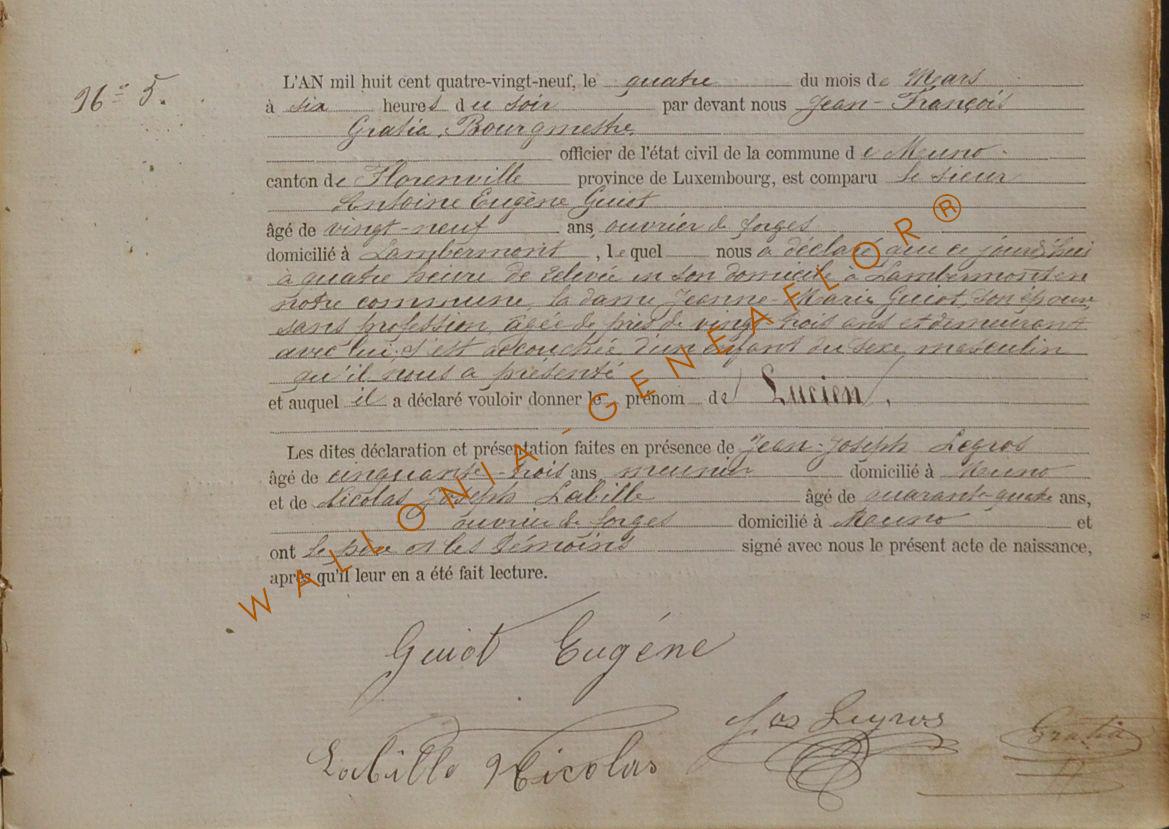 L'AN mil huit cent quatre-vingt-neuf, le quatre du mois de Mars
N° 5.
à six heures du soir par devant nous Jean-François
Gratia, Bourgmestre
officier de l'état civil de la commune de Muno.
canton de Florenville province de Luxembourg, est comparu le sieur
Antoine Eugène Guiot
âgé de vingt-neuf ans, ouvrier de forges
domicilié à Lambermont, lequel nous a déclaré que ce jourd'hui
à quatre heure de relevée en son domicile à Lambermont en
notre commune, la dame Jeanne-Marie Guiot, son épouse,
sans profession, âgée de près de vingt trois ans et demeurant
avec lui, s'est accouchée d'un enfant du sexe masculin
qu'il nous a présenté
et auquel il a déclaré vouloir donner le prénom de Lucien,
Les dites déclaration et présentation faites en présence de Jean-Joseph Legros
âgé de cinquante-trois ans meunier domicilié à Muno
et de Nicolas Joseph Labille âgé de quarant-quatre ans,
ouvrier de forges domicilié à Muno et
ont le père et les témoins signé avec nous le présent acte de naissance,
après qu'il leur en a été fait lecture.
Guiot Eugéne
Jos Legros
Gratia
Labille Nicolas
WALLONIA-GENEAFLOR®